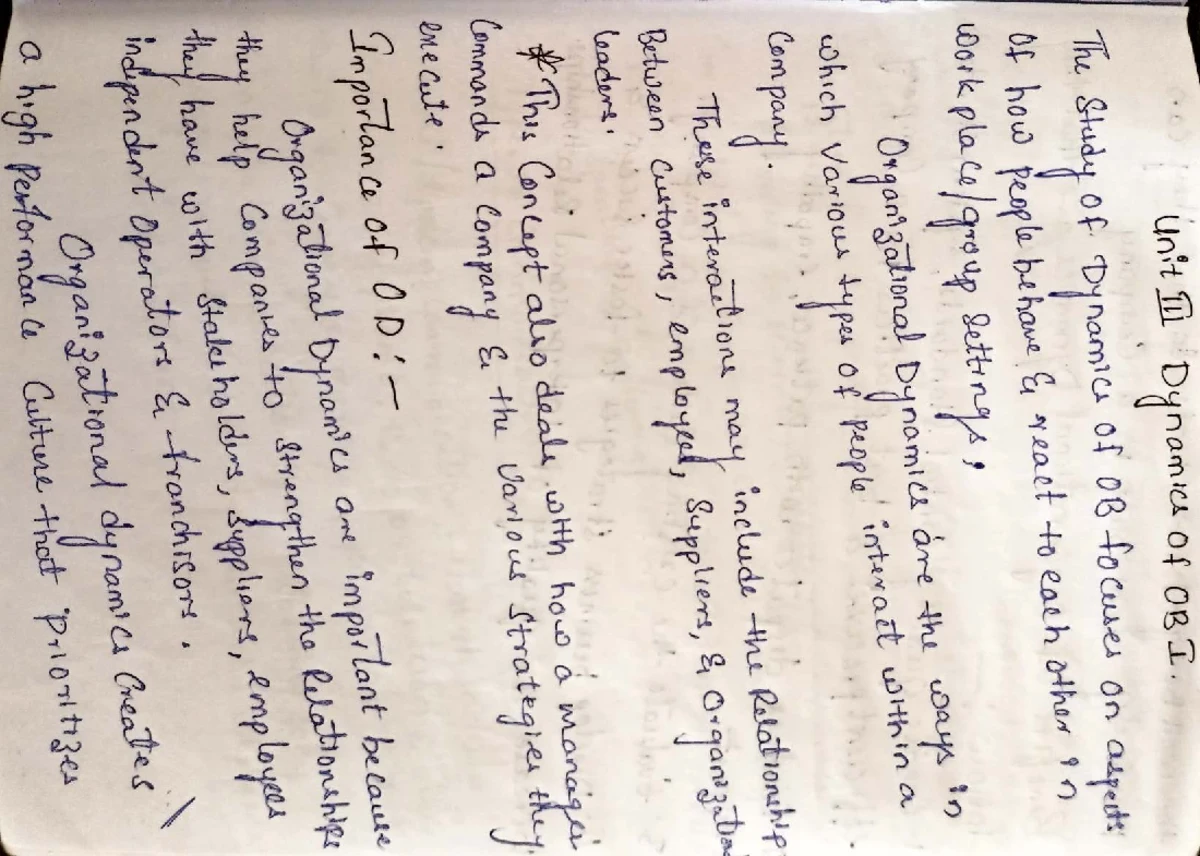 Unit III Dynamics of OB I.
The Study of Dynamics of OB focuses on aspects
of how people behave & react to each other in
workplace/group settings,
Organizational Dynamics are the ways in
which various types of people interact within a
Company.
These interactions may include the Relationship
Between customers, employees, Suppliers, & Organization
leaders.
* This Concept also deals with how a manager
Commands a Company & the various strategies they
execute.
Importance of OD:-
Organizational Dynamics are important because
they help Companies to strengthen the Relationships
they have with Stakeholders, suppliers, employees
independent operators & franchisors.
Organizational dynamics creates
a high performance culture that prioritizes